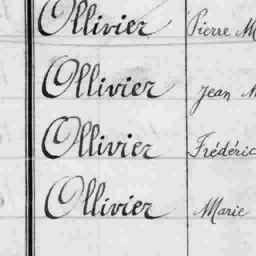 Ollivier Pierre M
Ollivier Jean M
Ollivier Frédéric
Ollivier Marie